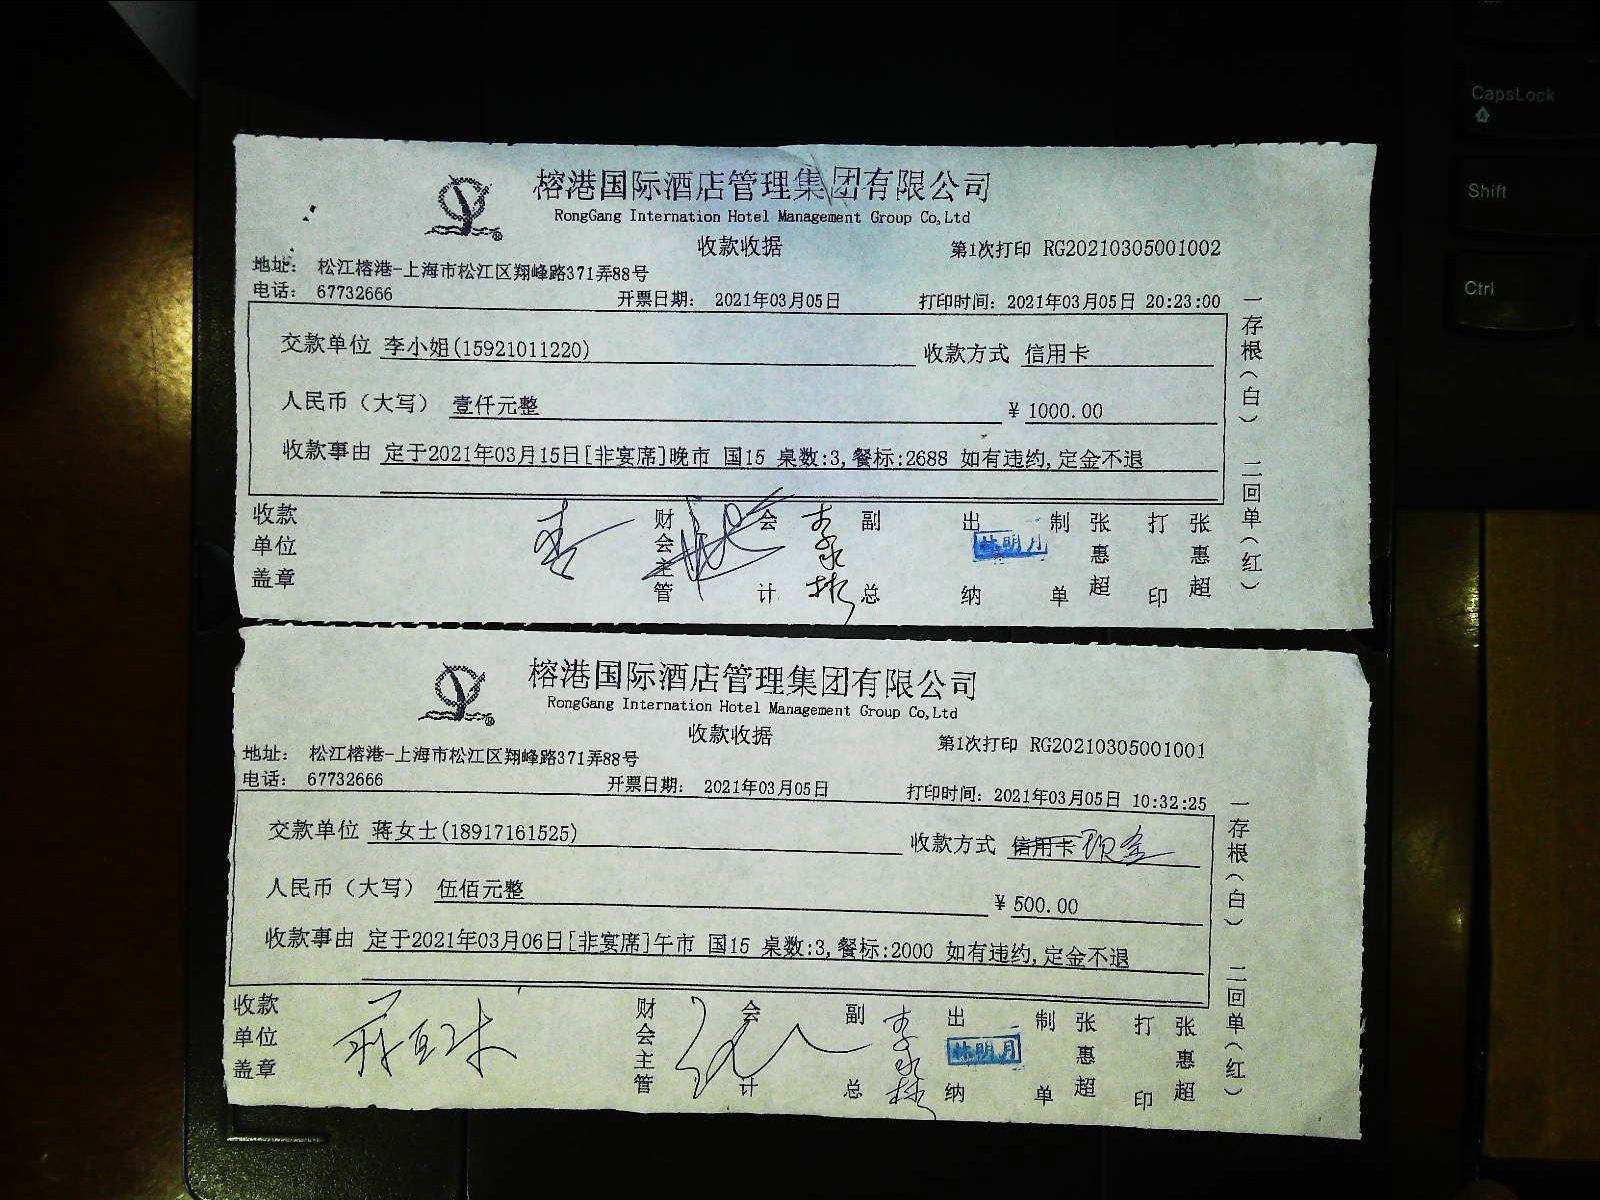 榕港国际酒店管理集团有限公司
RongGang Internation Hotel Management Group Co,Ltd
收款收据
第1次打印 RG20210305001002
地址： 松江榕港-上海市松江区翔峰路371弄88号
电话： 67732666
开票日期： 2021年03月05日
打印时间：2021年03月05日 20:23:00
交款单位 李小姐(15921011220)
收款方式 信用卡
人民币（大写） 壹仟元整
¥ 1000.00
收款事由 定于2021年03月15日[非宴席]晚市 国15 桌数:3,餐标:2688 如有违约,定金不退
一存根（白） 二回单（红）
收款单位盖章
财会主管
会计
副总
出纳
林明月
制单
张惠超
打印
张惠超
榕港国际酒店管理集团有限公司
RongGang Internation Hotel Management Group Co,Ltd
收款收据
第1次打印 RG20210305001001
地址： 松江榕港-上海市松江区翔峰路371弄88号
电话： 67732666
开票日期： 2021年03月05日
打印时间：2021年03月05日 10:32:25
交款单位 蒋女士(18917161525)
收款方式 信用卡 现金
人民币（大写） 伍佰元整
¥ 500.00
收款事由 定于2021年03月06日[非宴席]午市 国15 桌数:3,餐标:2000 如有违约,定金不退
一存根（白） 二回单（红）
收款单位盖章
财会主管
会计
副总
出纳
林明月
制单
张惠超
打印
张惠超
CapsLock
Shift
Ctrl